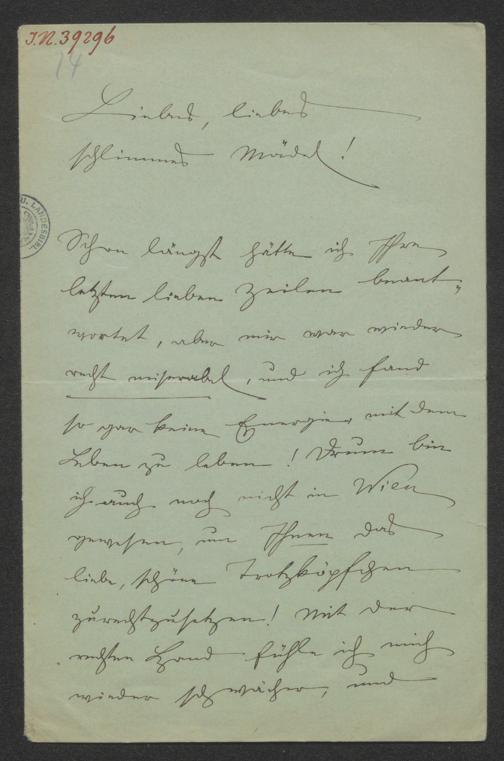 I.N. 39296
14
Liebes, liebes
schlimmes Mädel!
Schon längst hätte ich Ihre
letzten lieben Zeilen beant-
wortet, aber mir war wieder
recht miserabel, und ich fand
so gar keine Energie, mit dem
Leben zu leben! Drum bin
ich auch noch nicht in Wien
gewesen, um Ihnen das
liebe, schöne Trotzköpfchen
zurechtzusetzen! Mit der
rechten Hand fühle ich mich
wieder schwächer, und